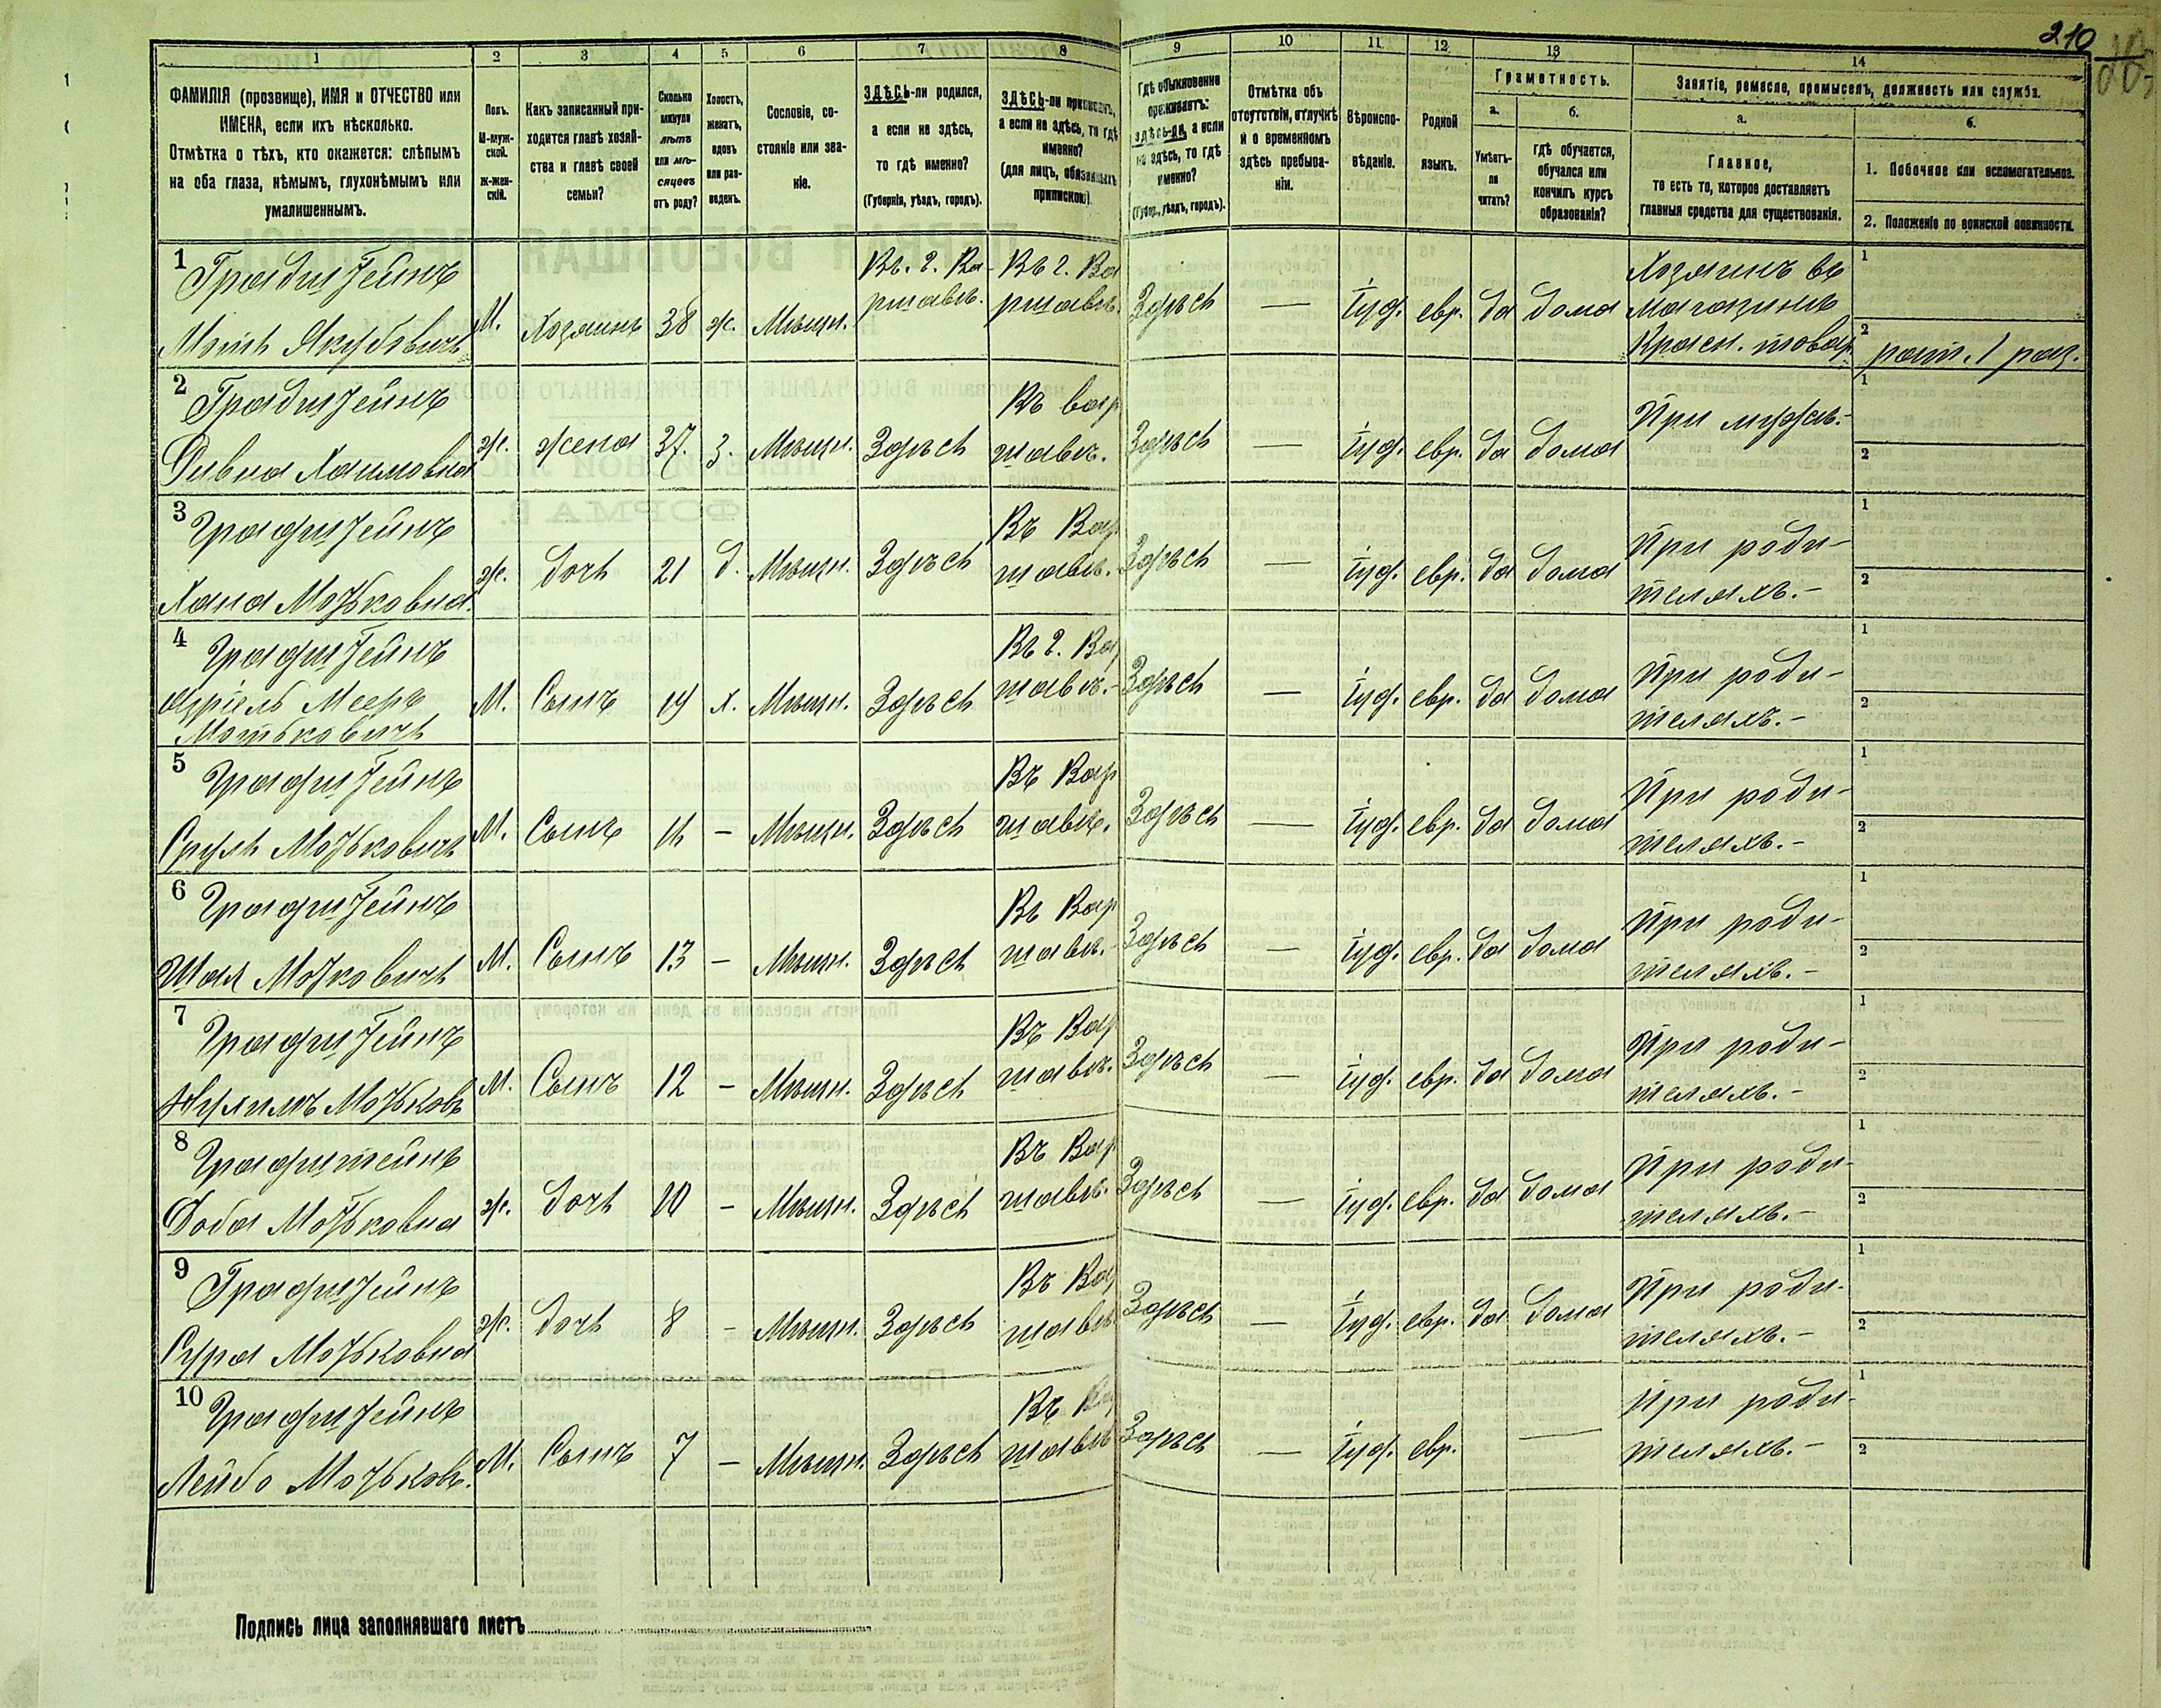 210
1 2 3 4 5 6 7 8 9 10 11 12 13 14
ФАМИЛІЯ (прозвище), ИМЯ и ОТЧЕСТВО или
ИМЕНА, если ихъ нѣсколько.
Отмѣтка о тѣхъ, кто окажется: слѣпымъ
на оба глаза, нѣмымъ, глухонѣмымъ или
умалишеннымъ.
Полъ.
М-муж-
ской.
Ж-жен-
скій.
Какъ записанный при-
ходится главѣ хозяй-
ства и главѣ своей
семьи?
Сколько
минуло
лѣтъ
или мѣ-
сяцевъ
отъ роду?
Холостъ,
женатъ,
вдовъ
или раз-
веденъ.
Сословіе, со-
стояніе или зва-
ніе.
ЗДѢСЬ-ли родился,
а если не здѣсь,
то гдѣ именно?
(Губернія, уѣздъ, городъ).
ЗДѢСЬ-ли приписанъ,
а если не здѣсь, то гдѣ
именно?
(для лицъ, обязанныхъ
припискою).
Гдѣ обыкновенно
проживаетъ:
здѣсь-ли, а если
не здѣсь, то гдѣ
именно?
(Губер., уѣздъ, городъ).
Отмѣтка объ
отсутствіи, отлучкѣ
и о временномъ
здѣсь пребыва-
ніи.
Вѣроиспо-
вѣданіе.
Родной
языкъ.
Грамотность.
а.
Умѣетъ-
ли
читать?
б.
гдѣ обучается,
обучался или
кончилъ курсъ
образованія?
Занятіе, ремесло, промыселъ, должность или служба.
а.
Главное,
то есть то, которое доставляетъ
главныя средства для существованія.
б.
1. Побочное или вспомогательное.
2. Положеніе по воинской повинности.
1 Градштейнъ
Мотъ Якубовичъ
М. Хозяинъ 38 ж. Мѣщ. Въ. г. Ва-
ршавѣ. Въ г. Ва
ршавѣ. Здѣсь — Іуд. евр. да дома Хозяинъ въ
магазинѣ
Красн. товар. 1
2 рат. 1 раз.
2 Градштейнъ
Дивна Хаимовна
ж. жена 37. З. Мѣщ. Здѣсь Въ Вар
шавѣ. Здѣсь — Іуд. евр. да дома При мужѣ.- 1
2
3 Градштейнъ
Хана Мотьковна.
ж. дочь 21 д. Мѣщ. Здѣсь Въ Вар
шавѣ. Здѣсь — Іуд. евр. да дома При роди-
теляхъ.- 1
2
4 Градштейнъ
Азріель Мееръ
Мотьковичъ
М. Сынъ 19 х. Мѣщ. Здѣсь Въ г. Вар
шавѣ.- Здѣсь — Іуд. евр. да дома При роди-
теляхъ.- 1
2
5 Градштейнъ
Сруль Мотьковичъ
М. Сынъ 14 - Мѣщ. Здѣсь Въ Вар
шавѣ. Здѣсь — Іуд. евр. да дома При роди-
теляхъ.- 1
2
6 Градштейнъ
Шая Мотковичъ
М. Сынъ 13 - Мѣщ. Здѣсь Въ Вар
шавѣ.- Здѣсь — Іуд. евр. да дома При роди-
теляхъ.- 1
2
7 Градштейнъ
Нухимъ Мотьковъ
М. Сынъ 12 - Мѣщ. Здѣсь Въ Вар
шавѣ. Здѣсь — Іуд. евр. да дома При роди-
теляхъ.- 1
2
8 Градштейнъ
Доба Мотьковна
ж. дочь 10 - Мѣщ. Здѣсь Въ Вар
шавѣ. Здѣсь — Іуд. евр. да дома При роди-
теляхъ.- 1
2
9 Градштейнъ
Сура Мотьковна
ж. дочь 8 - Мѣщ. Здѣсь Въ Вар
шавѣ Здѣсь — Іуд. евр. да дома При роди-
теляхъ.- 1
2
10 Градштейнъ
Лейбо Мотьков.
М. Сынъ 7 - Мѣщ. Здѣсь Въ Вар
шавѣ Здѣсь — Іуд. евр. — При роди-
теляхъ.- 1
2
Подпись лица заполнявшаго листъ